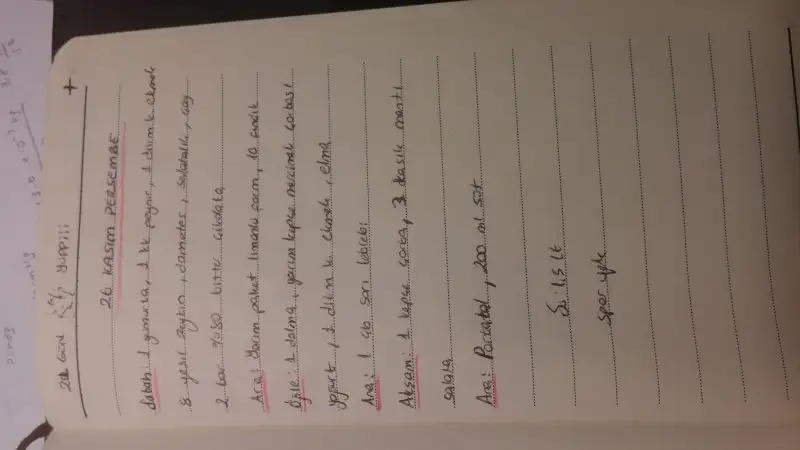 26. Gün Yuppiii
+
26 KASIM PERŞEMBE
Sabah: 1 yumurta, 1 kk peynir, 1 dilim k. ekmek
8 yeşil zeytin, domates, salatalık, çay
2 bar %80 bitter çikolata
Ara: Yarım paket limonlu form, 10 fındık
Öğle: 1 dolma, yarım kepçe mercimek çorbası
yoğurt, 1 dilim k. ekmek, elma
Ara: 1 çb sarı leblebi
Akşam: 1 kepçe çorba, 3 kaşık mantı
salata
Ara: Portakal, 200 ml süt
Su: 1,5 lt
Spor yok